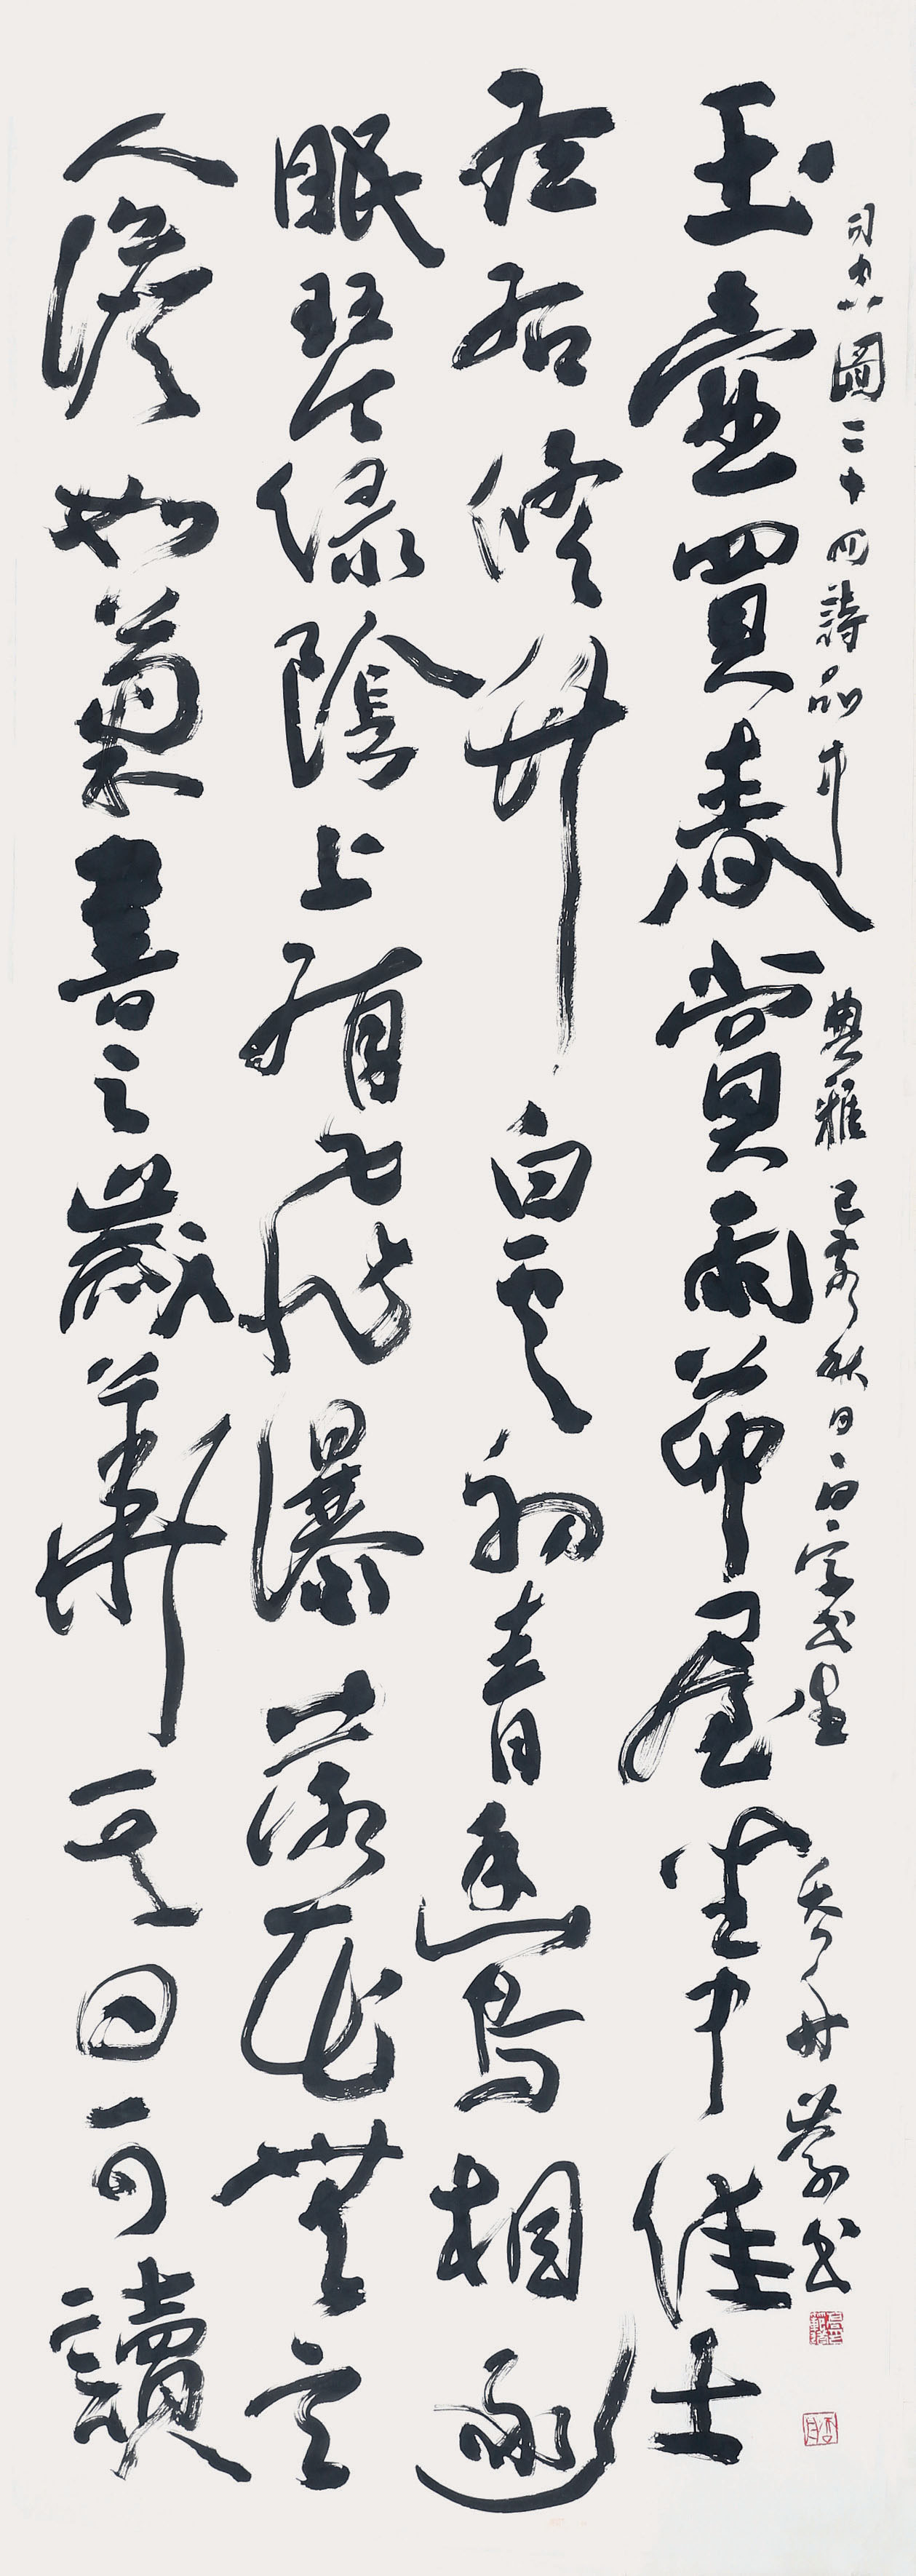 司空圖二十四詩品中 典雅 己亥秋日
玉壺買春賞雨茆屋坐中佳士
左右脩竹白雲初晴幽鳥相逐
眠琴綠陰上有飛瀑落花無言
人澹如菊書之歲華其曰可讀